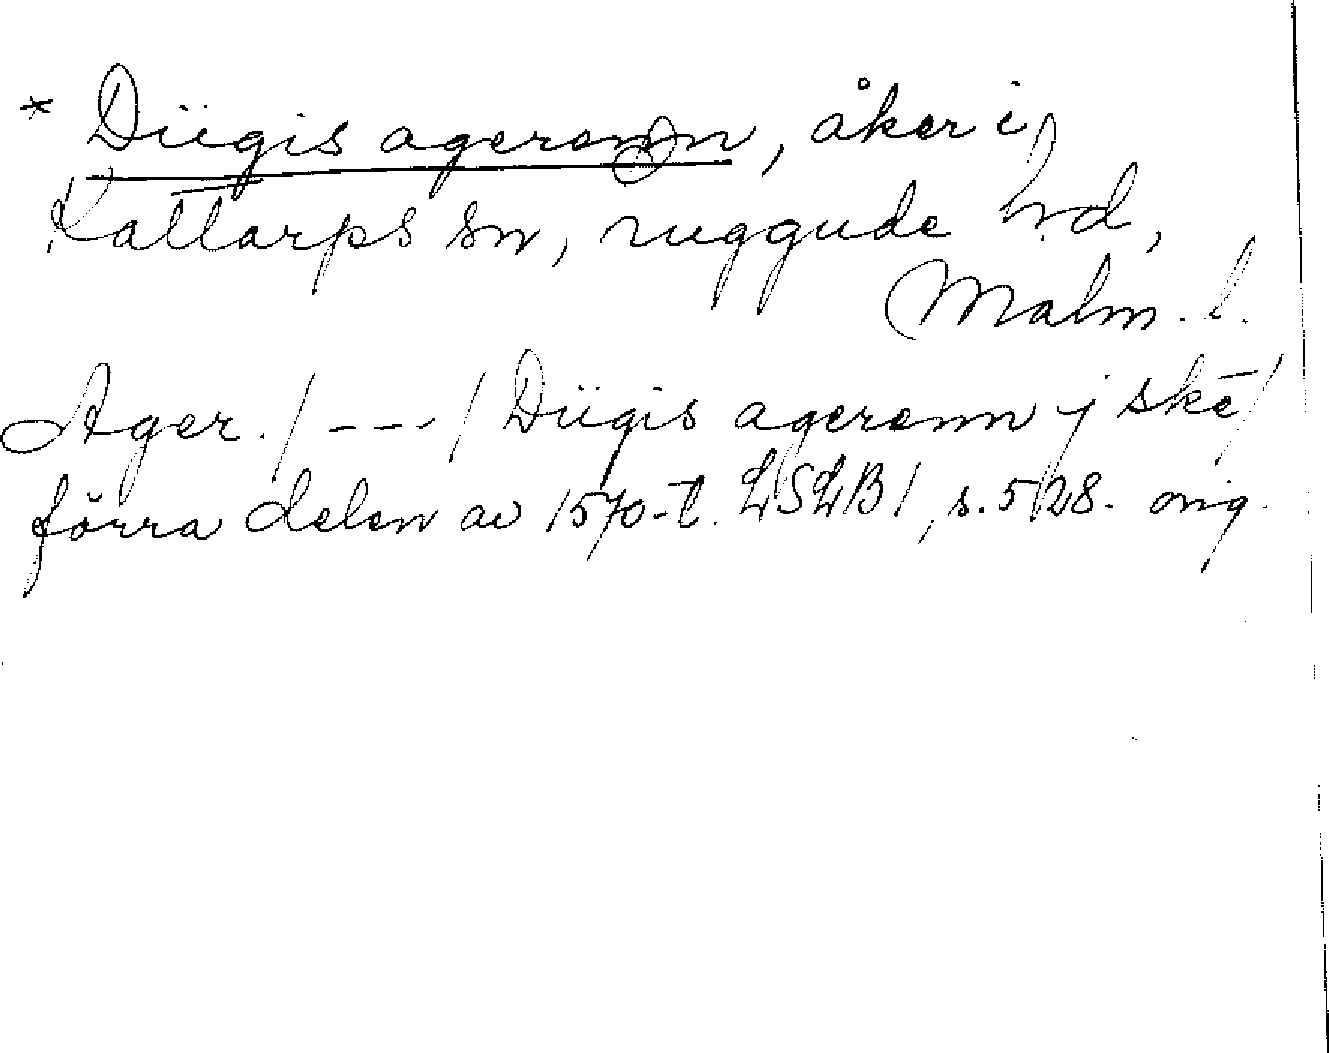 * Dügis agerenn, åker i
Kattarps sn, Luggude hd,
Malm. l.
Ager. / --- / Dügis agerenn j ske /
förra delen av 1570-t. LSLB 1, s. 528. orig.